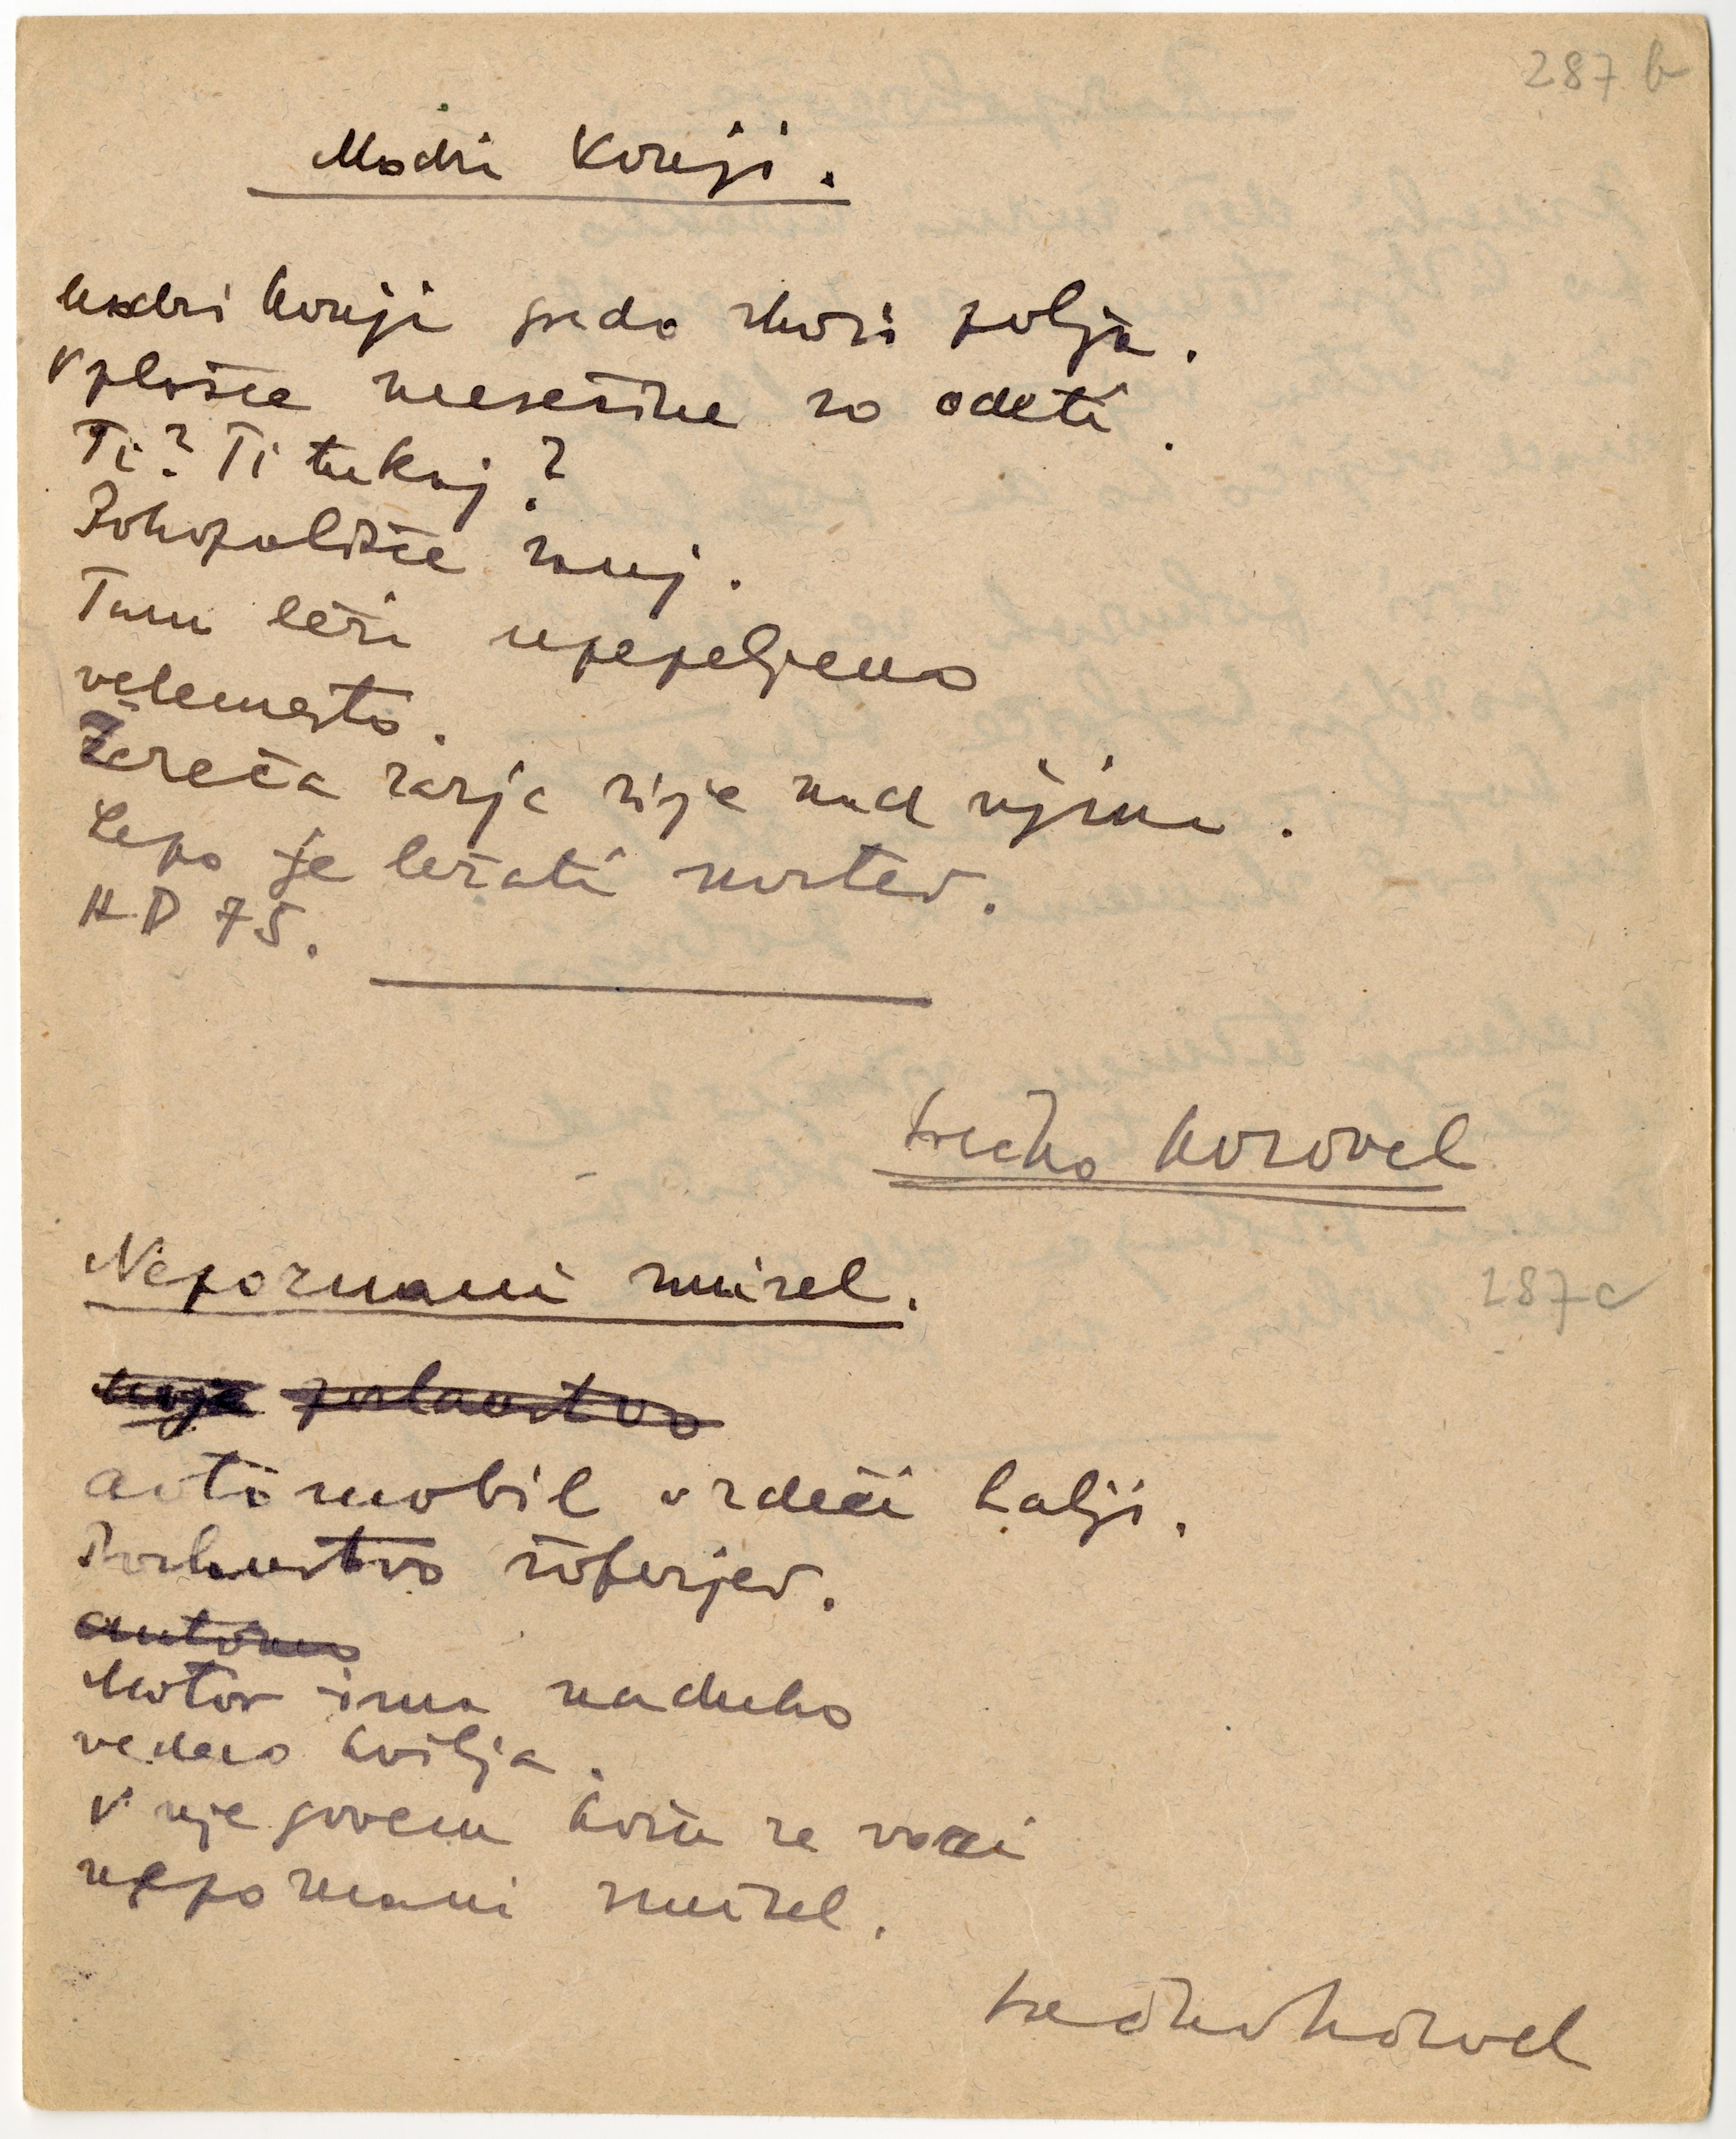 287 b
Modri konji.
Modri konji gredo skozi polja.
V plašče mesečine so odeti.
Ti? Ti tukaj?
Pokopališče sanj.
Tam leži upepeljeno
velemesto.
Žareča zarja sije nad njim.
Lepo je ležati mrtev.
HD 75.
Srečko Kosovel
Nepoznani smisel.
287 c
moje poslanstvo
avtomobil v rdeči halji.
Poslanstvo šoferjev.
automo
Motor ima naduho
vedno kašlja.
V njegovem košu se vozi
nepoznani smisel.
Srečko Kosovel